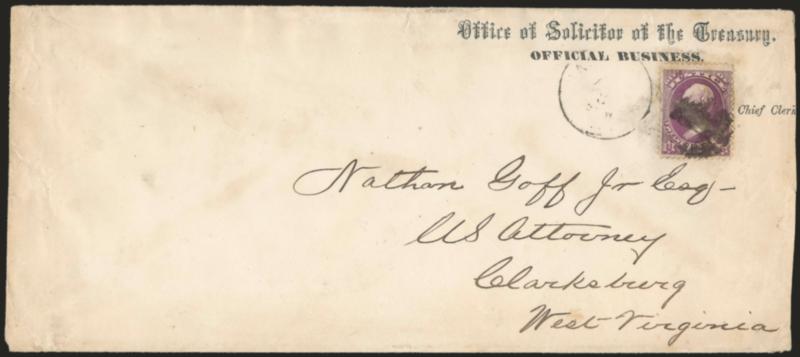 Office of Solicitor of the Treasury.
OFFICIAL BUSINESS.
Chief Clerk
Nathan Goff Jr Esq-
US Attorney
Clarksburg
West Virginia